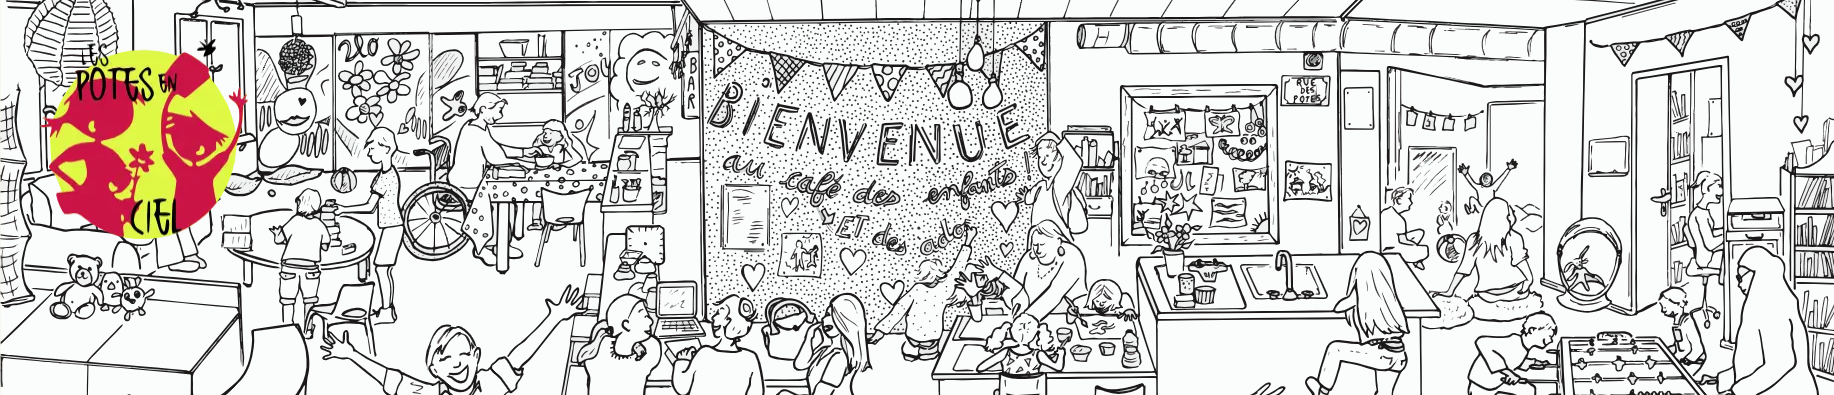 LES
POTES EN
CIEL
JOY
BAR
BIENVENUE
au café des enfants !
ET des ados
RUE
DES
POTES